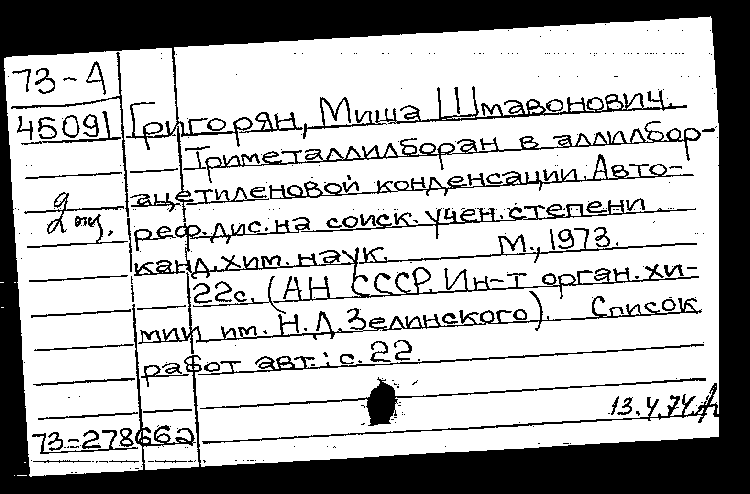 73-А
45091 Григорян, Миша Шмавонович.
Триметаллилборан в аллилбор-
ацетиленовой конденсации. Авто-
реф.дис.на соиск.учен.степени
канд.хим.наук. М.,1973.
22с. (АН СССР. Ин-т орган.хи-
мии им. Н.Д.Зелинского). Список
работ авт.: с.22.
13.4.74.
73-278662